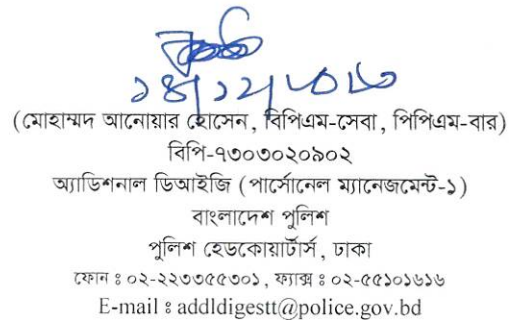 (মোহাম্মদ আনোয়ার হোসেন, বিপিএম-সেবা, পিপিএম-বার)
বিপি-৭৩০৩০২০৯০২
অ্যাডিশনাল ডিআইজি (পার্সোনেল ম্যানেজমেন্ট-১)
বাংলাদেশ পুলিশ
পুলিশ হেডকোয়ার্টার্স, ঢাকা
ফোন ঃ ০২-২২৩৩৫৫৩০১, ফ্যাক্স ঃ ০২-৫৫১০১৬১৬
E-mail ঃ addldigestt@police.gov.bd